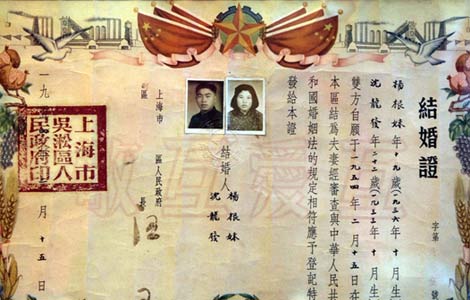 結婚證
字第 號
楊根妹 年十九歲(一九三六年十月生
沈龍發 年二十二歲(一九三三年十月生
雙方自願于一九五四年二月十五日在
本區結為夫妻經審查與中華人民共
和國婚姻法的規定相符應予登記特
發給本證
結婚人 楊根妹
沈龍發
上海市
區 區人民政府 長
一九 月十五日
上海市
吳淞區人
民政府印
愛互敬